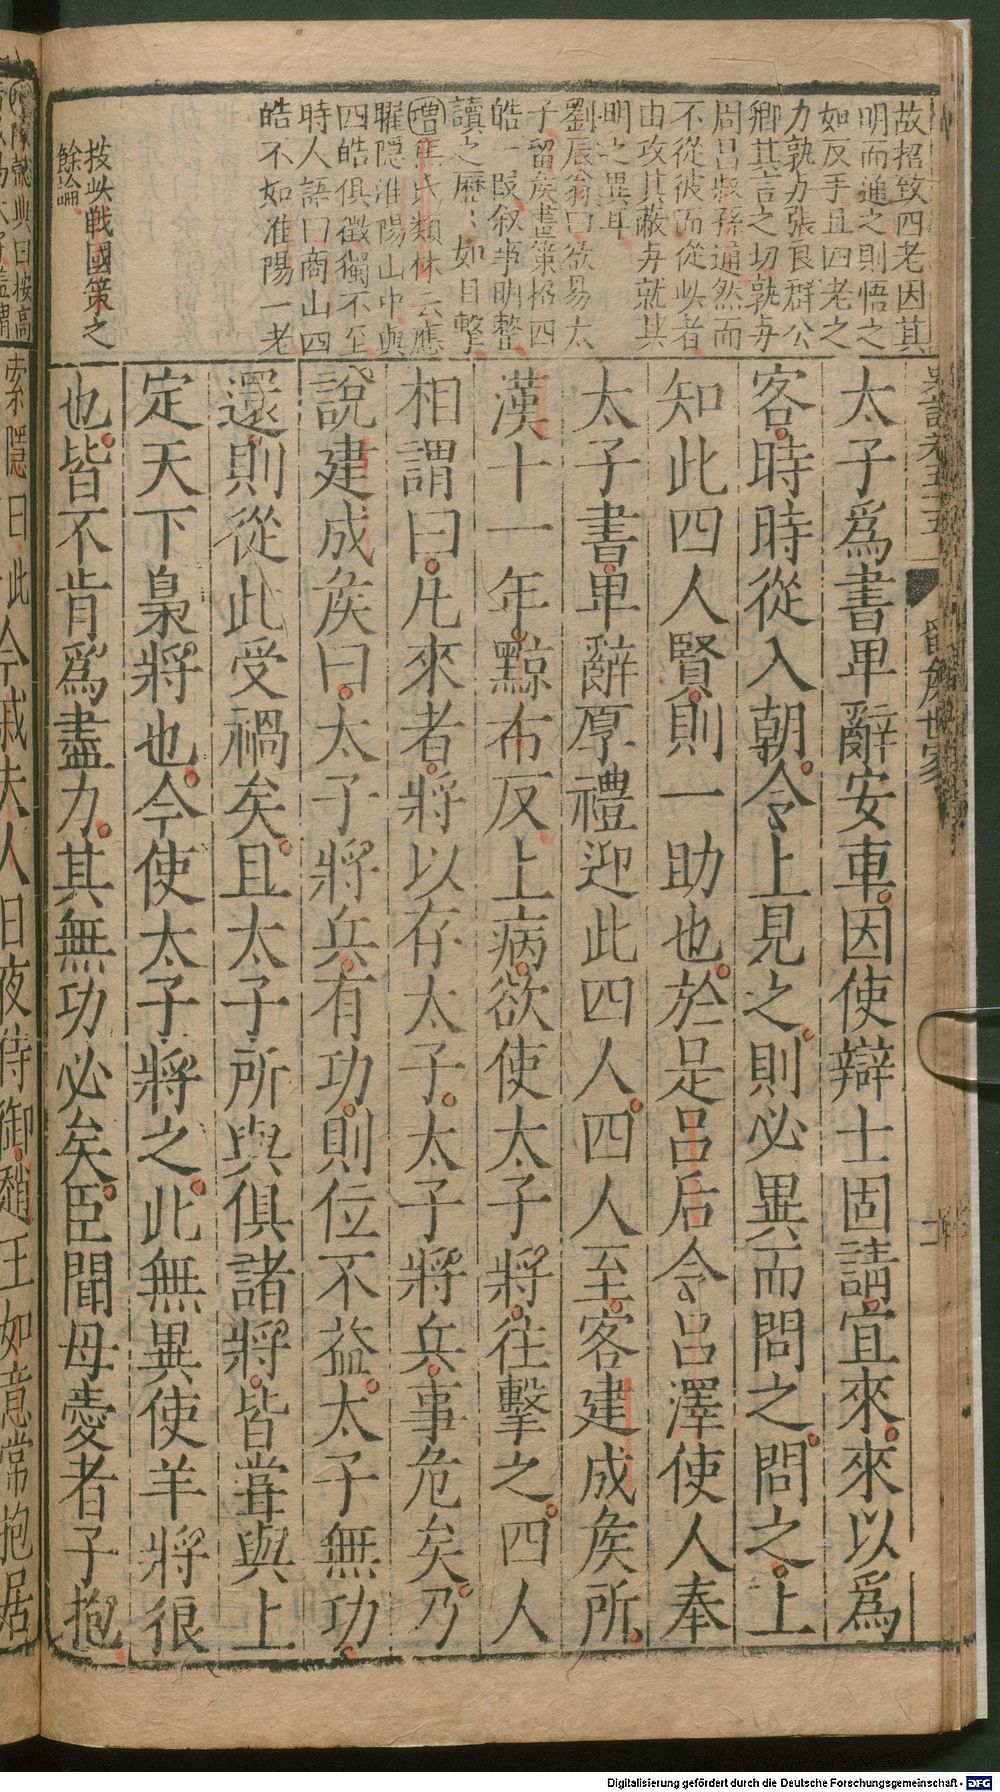 故招致四老因其
明而通之則悟之
如反手且四老之
力孰与張良群公
卿其言之切孰与
周昌叔孫通然而
不從彼而從此者
由攻其蔽与就其
明之異耳
劉辰翁曰欲易太
子留矦畫策招四
皓一段叙事明整
讀之歷〻如目擊
增焦氏類林云應
矅隠淮陽山中與
四皓俱徵獨不至
時人語曰商山四
皓不如淮陽一老
按此戰國策之
餘論
太子爲書卑辭安車因使辯士固請宜來來以爲
客時時從入朝令上見之則必異而問之問之上
知此四人賢則一助也於是呂后令呂澤使人奉
太子書卑辭厚禮迎此四人四人至客建成矦所
漢十一年黥布反上病欲使太子將往擊之四人
相謂曰凡來者將以存太子太子將兵事危矣乃
說建成矦曰太子將兵有功則位不益太子無功
還則從此受禍矣且太子所與俱諸將皆嘗與上
定天下梟將也今使太子將之此無異使羊將狼
也皆不肯爲盡力其無功必矣臣聞母愛者子抱
索隱曰此
今戚夫人日夜侍御趙王如意常抱居
Digitalisierung gefördert durch die Deutsche Forschungsgemeinschaft - DFG